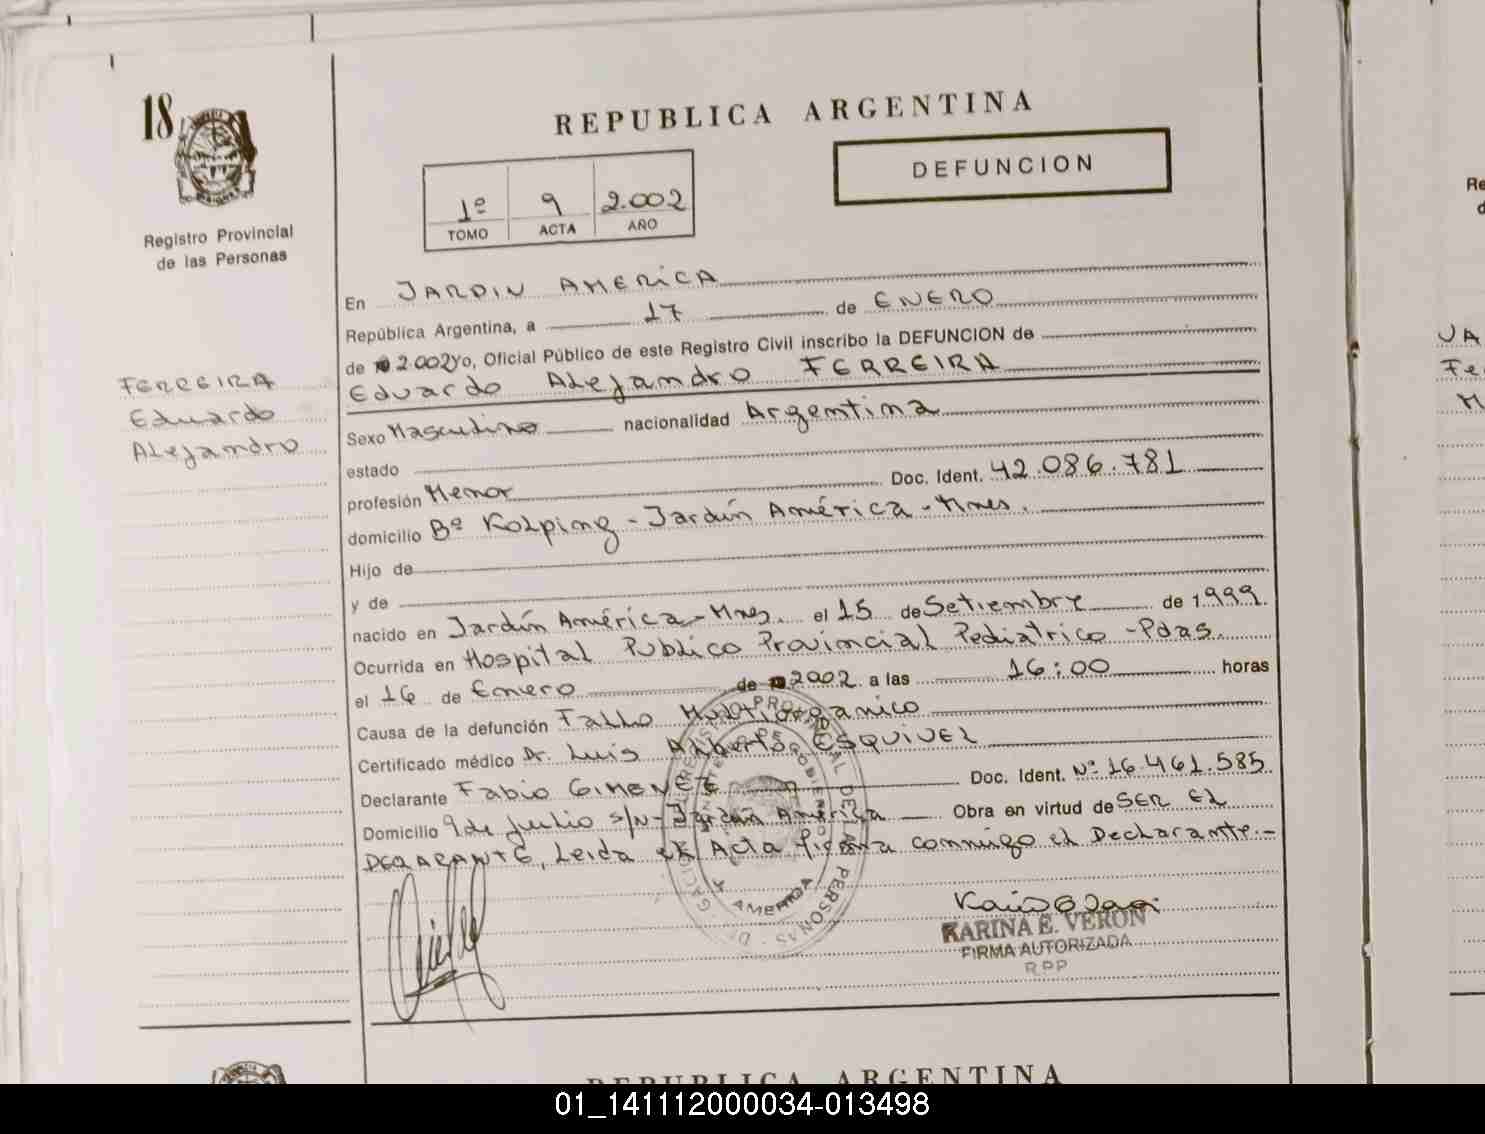 18
REPUBLICA ARGENTINA
DEFUNCION
1º 9 2.002
TOMO ACTA AÑO
Registro Provincial
de las Personas
FERREIRA
Eduardo
Alejandro
En JARDIN AMERICA
República Argentina, a 17 de ENERO
de 2.002 yo, Oficial Público de este Registro Civil inscribo la DEFUNCION de
Eduardo Alejandro FERREIRA
Sexo Masculino nacionalidad Argentina
estado
profesión Menor Doc. Ident. 42.086.781
domicilio Bº Kolping - Jardín América - Mnes.
Hijo de
y de
nacido en Jardín América - Mnes. el 15 de Setiembre de 1.999.
Ocurrida en Hospital Publico Provincial Pediatrico - Pdas.
el 16 de Enero de 2002 a las 16:00 horas
Causa de la defunción Fallo Multiorganico
Certificado médico Dr. Luis Alberto ESQUIVEL
Declarante Fabio GIMENEZ Doc. Ident. Nº 16.461.585
Domicilio 9 de Julio s/N - Jardín América Obra en virtud de SER EL
DECLARANTE, Leida el Acta firma conmigo el Declarante.-
KARINA E. VERON
FIRMA AUTORIZADA
RPP
REPUBLICA ARGENTINA
Re
d
VA
Fe
M
01_141112000034-013498